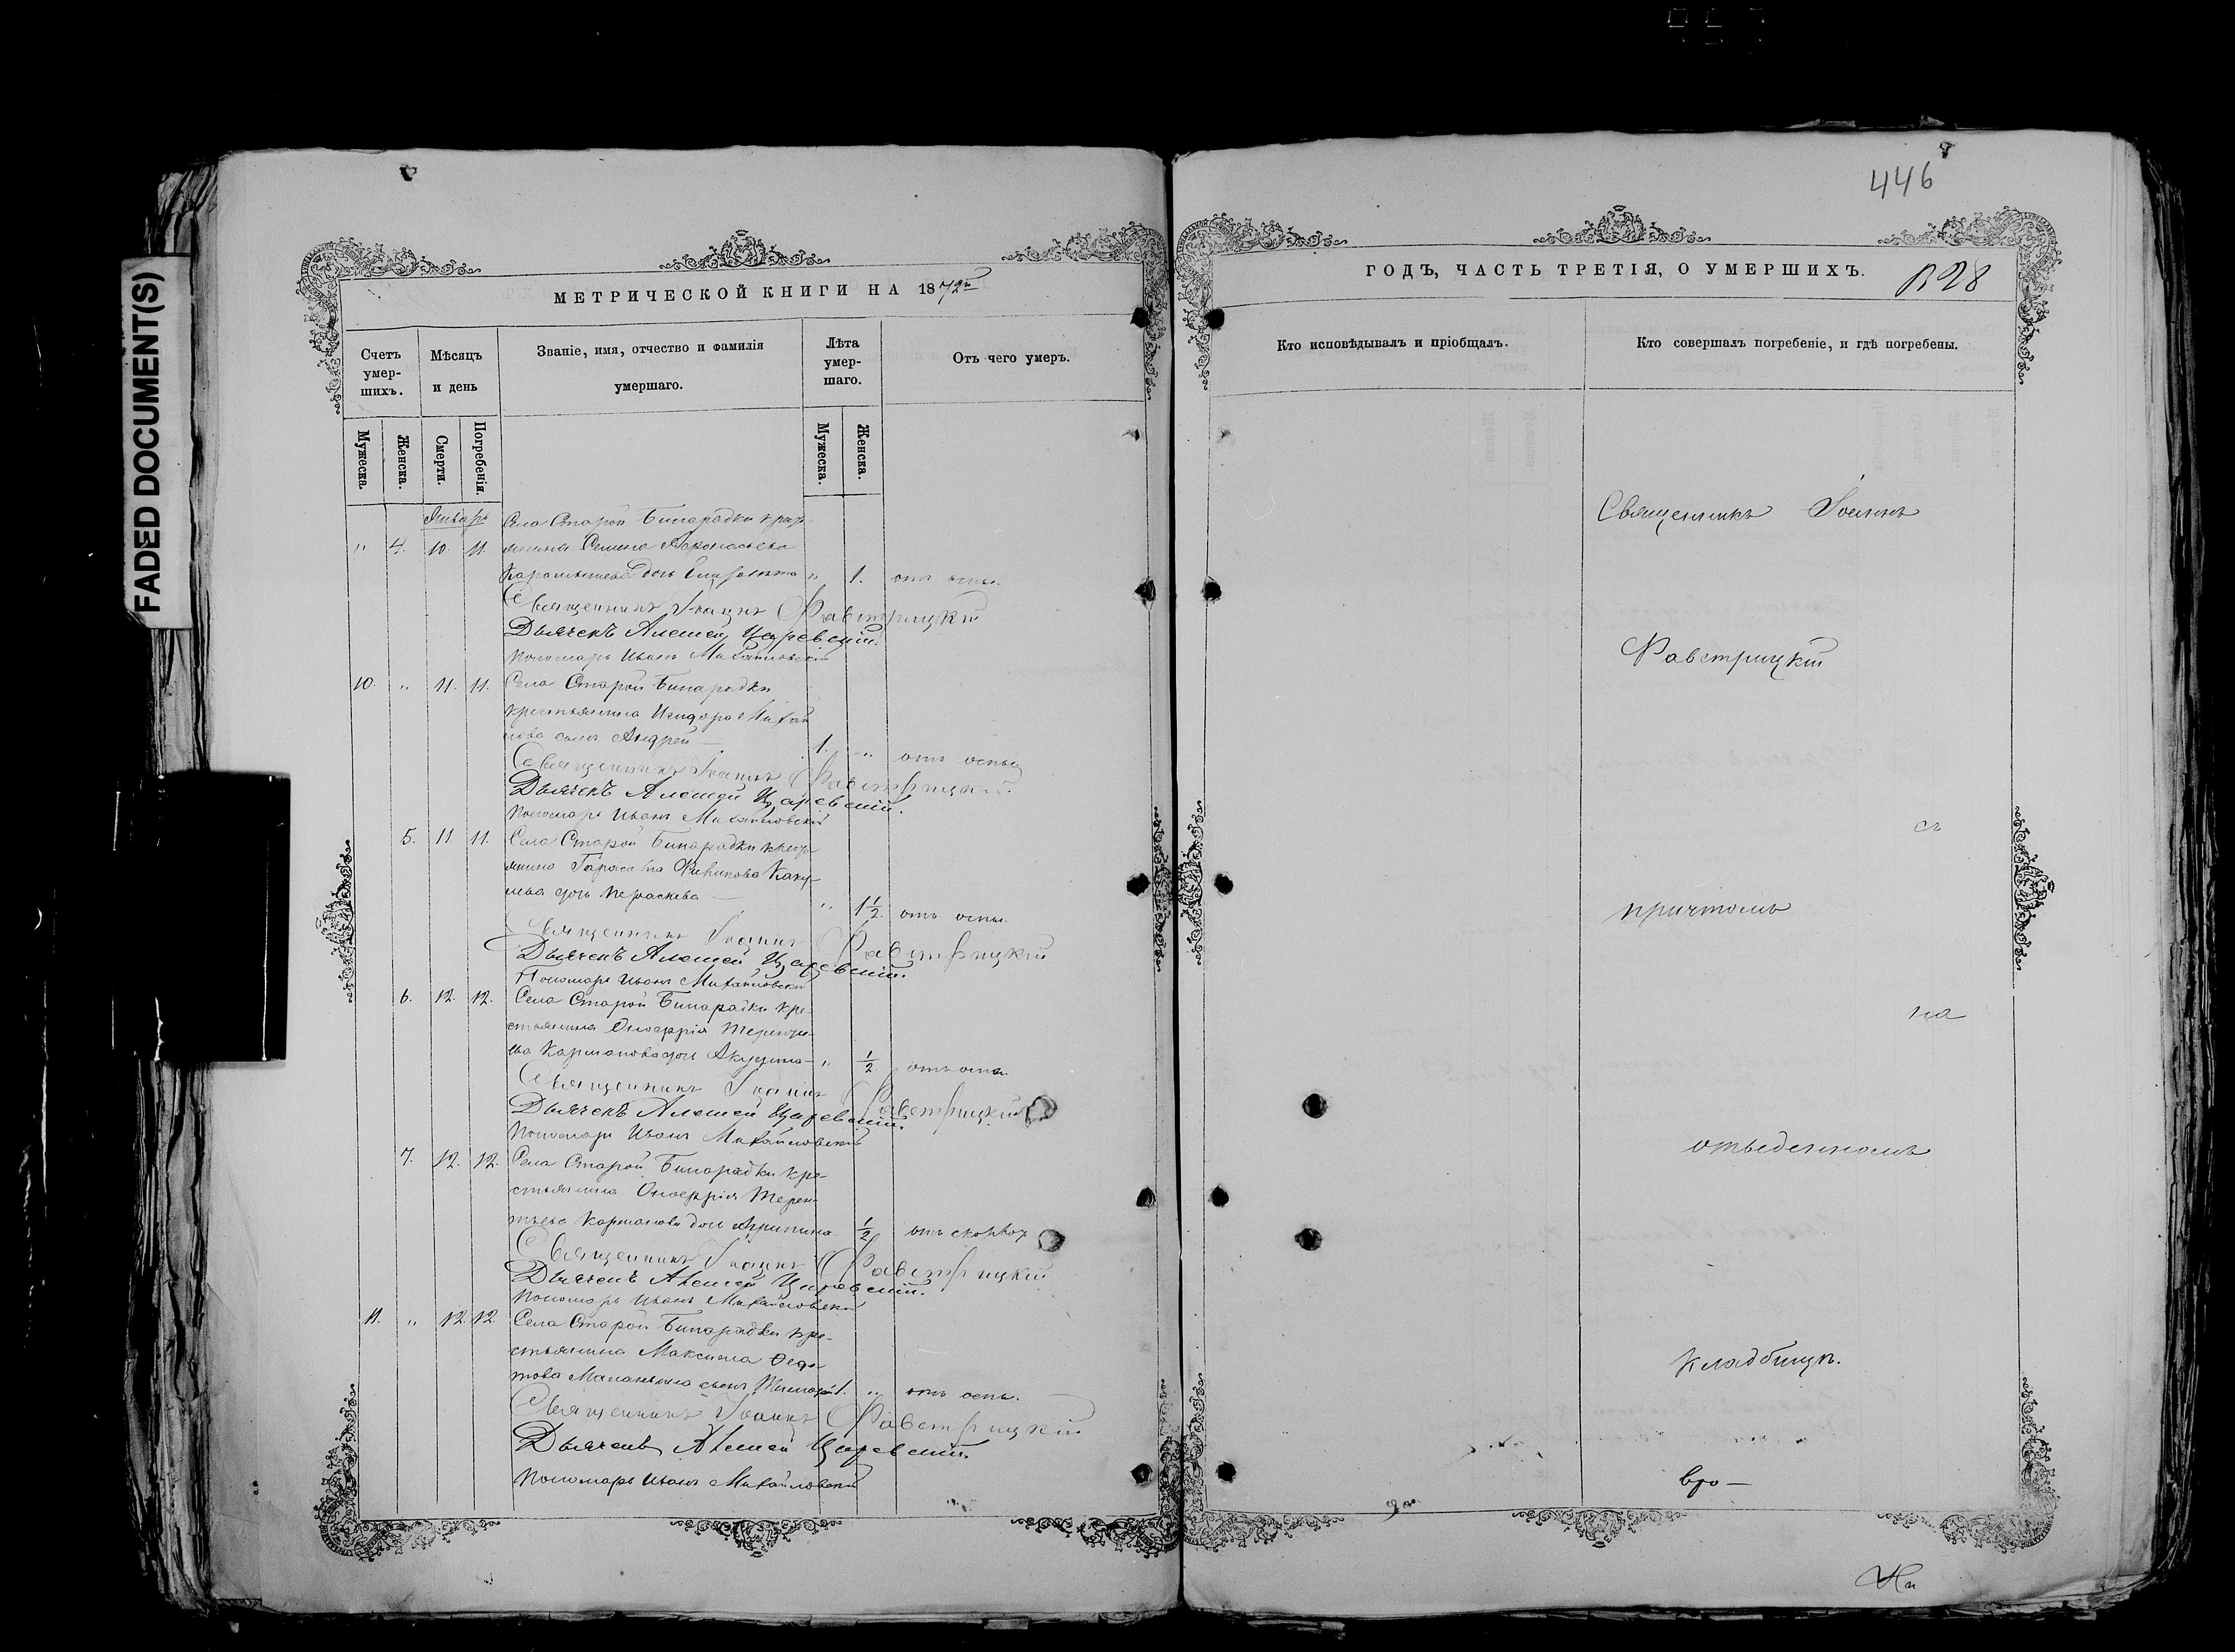 FADED DOCUMENT(S)
МЕТРИЧЕСКОЙ КНИГИ НА 1872й
Счетъ умер-шихъ.
Мѣсяцъ и день
Званіе, имя, отчество и фамилія умершаго.
Лѣта умер-шаго.
Отъ чего умеръ.
Мужеска.
Женска.
Смерти.
Погребенія.
Мужеска.
Женска.
Январь
Села Старой Бинарадки крест
" 4. 10. 11. янина Семена Афонасьева
дочь Елизавета " 1. отъ оспы.
Священникъ Іоаннъ Фавстрицкій
Дьячекъ Алексей Царевскій.
Пономарь Иванъ Михайловскій
10. " 11. 11. Села Старой Бинарадки
крестьянина Исидора Михай
лова сынъ Андрей — 1. " отъ оспы
Священникъ Іоаннъ Фавстрицкій
Дьячекъ Алексей Царевскій.
Пономарь Иванъ Михайловскій
5. 11. 11. Села Старой Бинарадки крест
янина Филипова
дочь Параскева — " 1 1/2. отъ оспы.
Священникъ Іоаннъ Фавстрицкій
Дьячекъ Алексей Царевскій.
Пономарь Иванъ Михайловскій
6. 12. 12. Села Старой Бинарадки кре-
стьянина Онофрія Теренть
ева Карманова дочь Акулина — " 1/2 отъ оспы
Священникъ Іоаннъ Фавстрицкій
Дьячекъ Алексей Царевскій.
Пономарь Иванъ Михайловскій
7. 12. 12. Села Старой Бинарадки кре-
стьянина Онофрія Терен-
тьева Карманова дочь Агрипина 1/2 отъ
Священникъ Іоаннъ Фавстрицкій
Дьячекъ Алексей Царевскій.
Пономарь Иванъ Михайловскій
11. " 12. 12. Села Старой Бинарадки кре-
стьянина Максима Ѳедо
това Маланьина сынъ Тимофей 1. " отъ оспы.
Священникъ Іоаннъ Фавстрицкій
Дьячекъ Алексей Царевскій.
Пономарь Иванъ Михайловскій
446
ГОДЪ, ЧАСТЬ ТРЕТІЯ, О УМЕРШИХЪ.
Кто исповѣдывалъ и пріобщалъ.
Кто совершалъ погребеніе, и гдѣ погребены.
Священникъ Іоаннъ
Фавстрицкій
съ
причтомъ
на
отведенномъ
кладбищѣ.